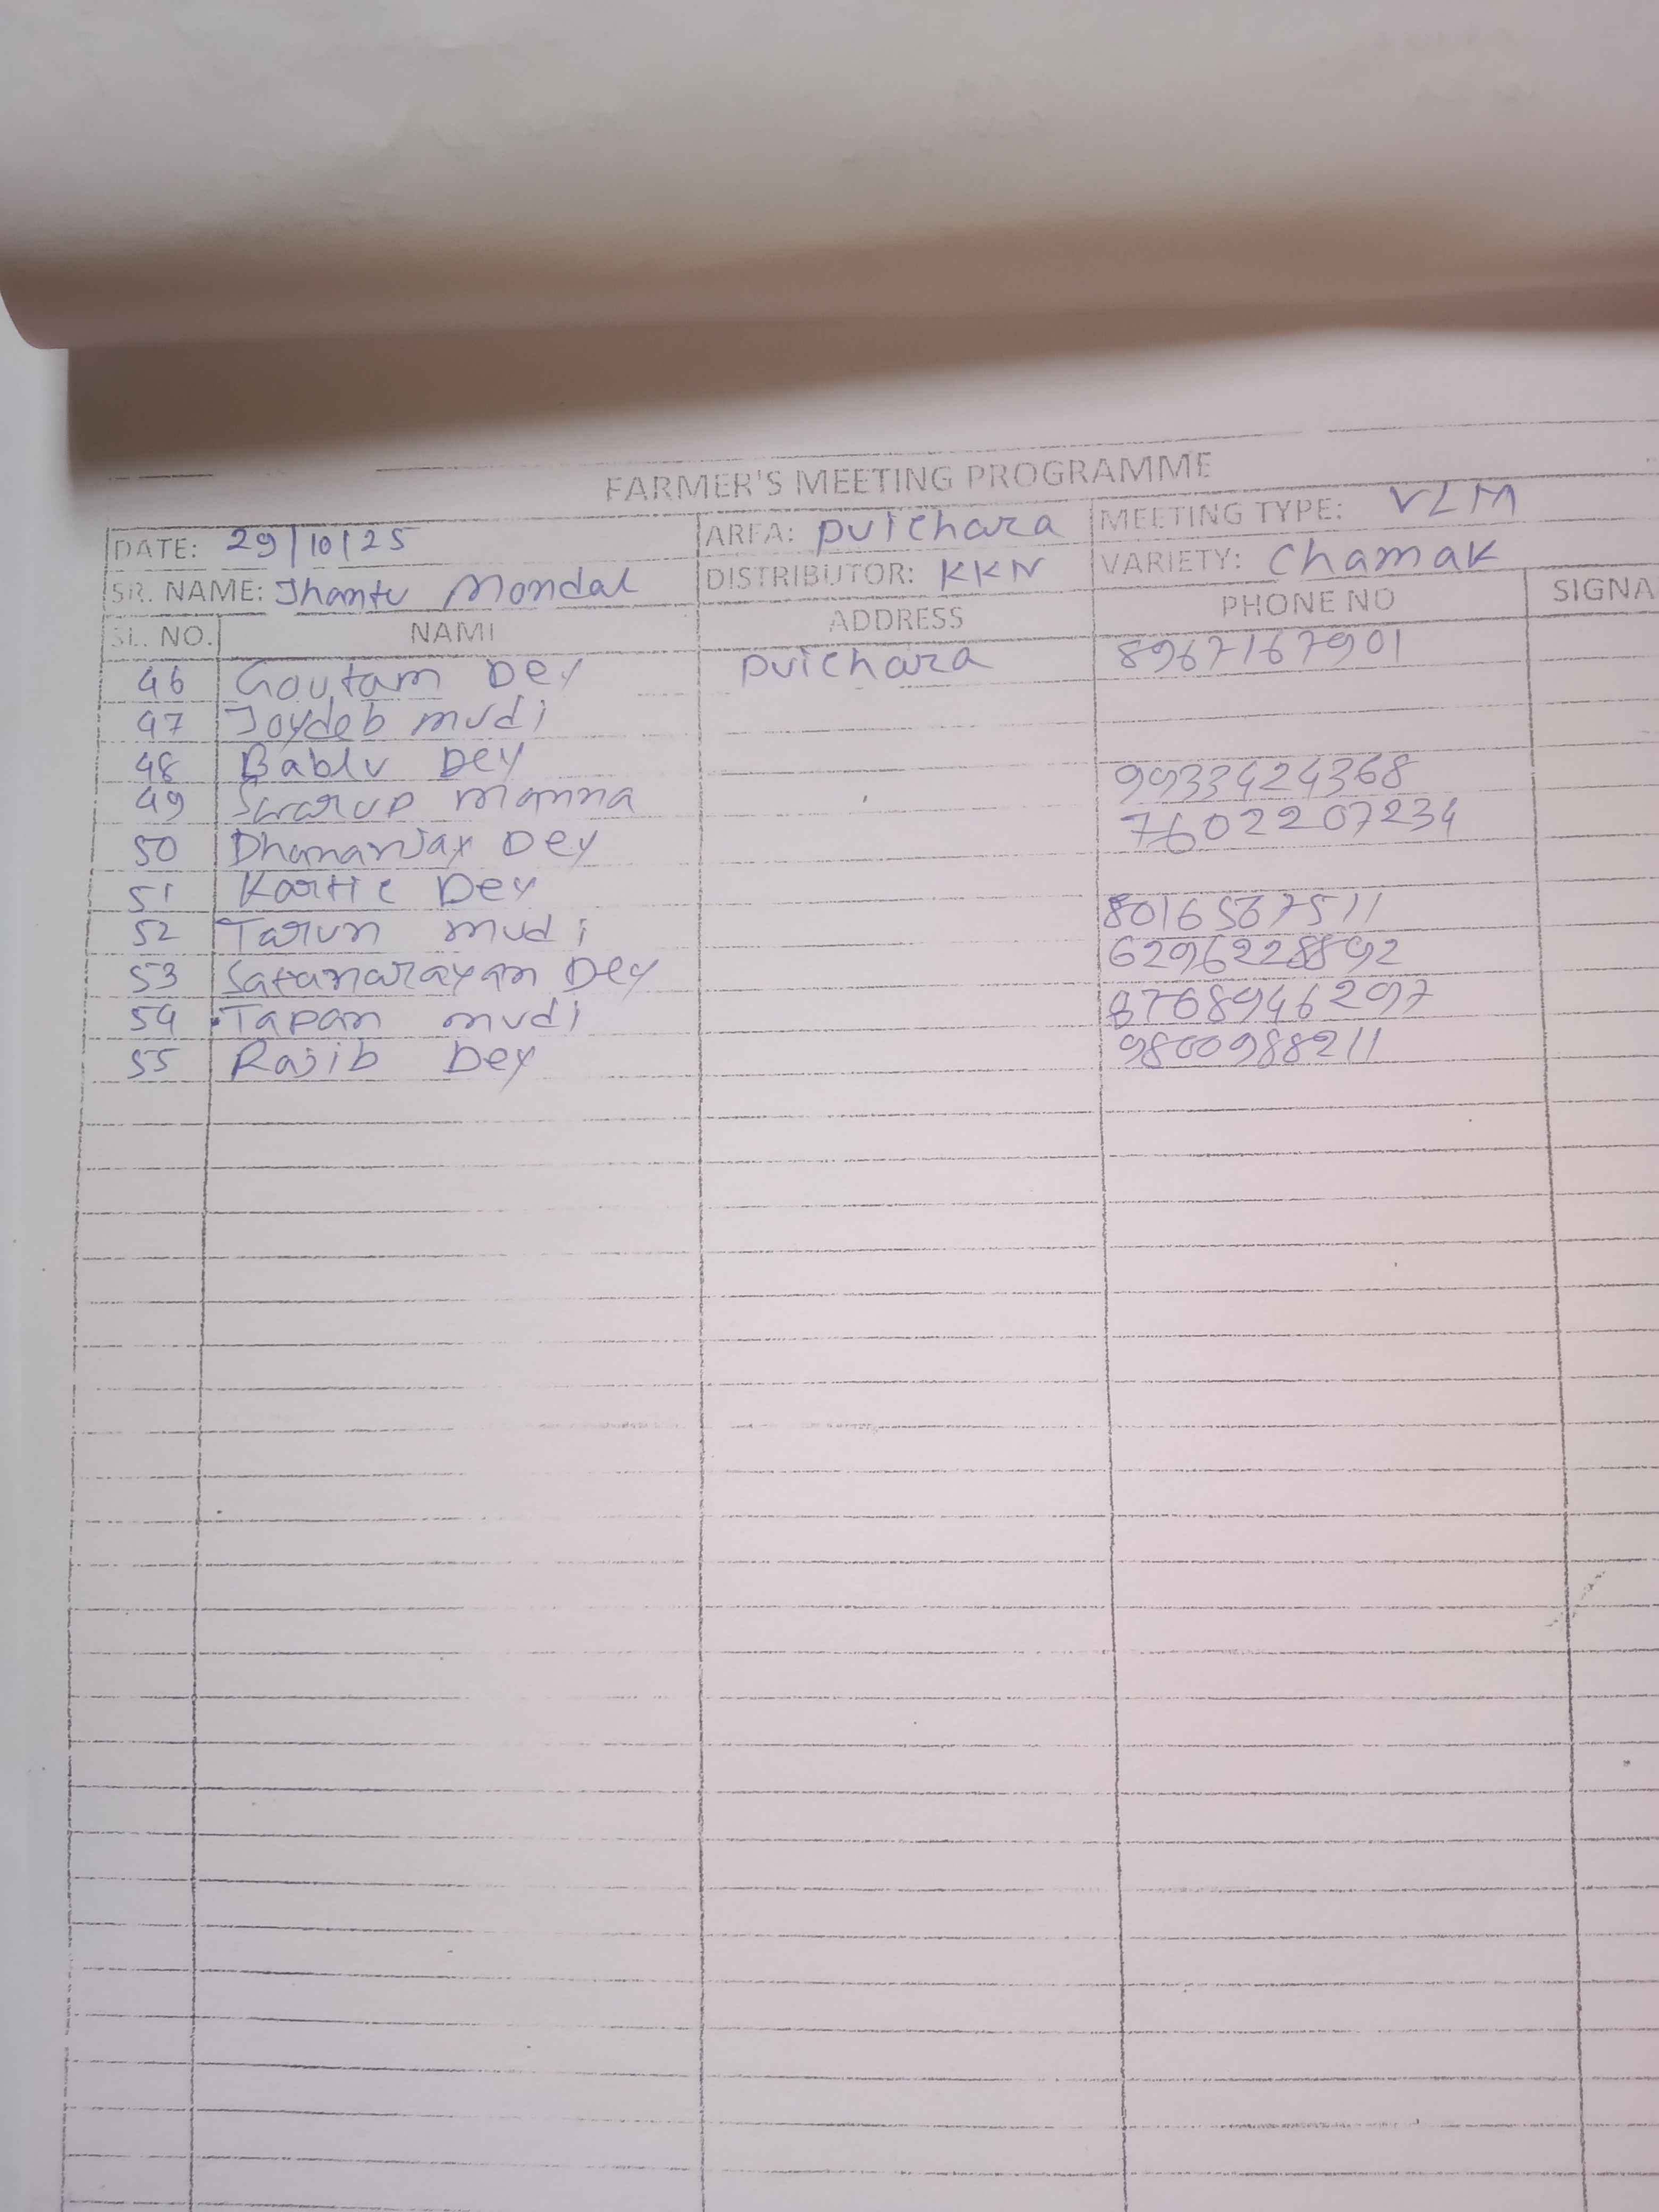 FARMER'S MEETING PROGRAMME
DATE: 29/10/25 AREA: Puichara MEETING TYPE: VLM
SR. NAME: Jhantu Mondal DISTRIBUTOR: KKN VARIETY: Chamak
SL. NO. NAME ADDRESS PHONE NO SIGNA
46 Goutam Dey Puichara 8967167901
47 Joydeb mudi
48 Bablu Dey
49 Swarup manna 9933424368
50 Dhananjay Dey 7602207234
51 Kartic Dey
52 Tarun mudi 8016567511
53 Satanarayan Dey 6296228892
54 Tapan mudi 8768946297
55 Rajib Dey 9800988211